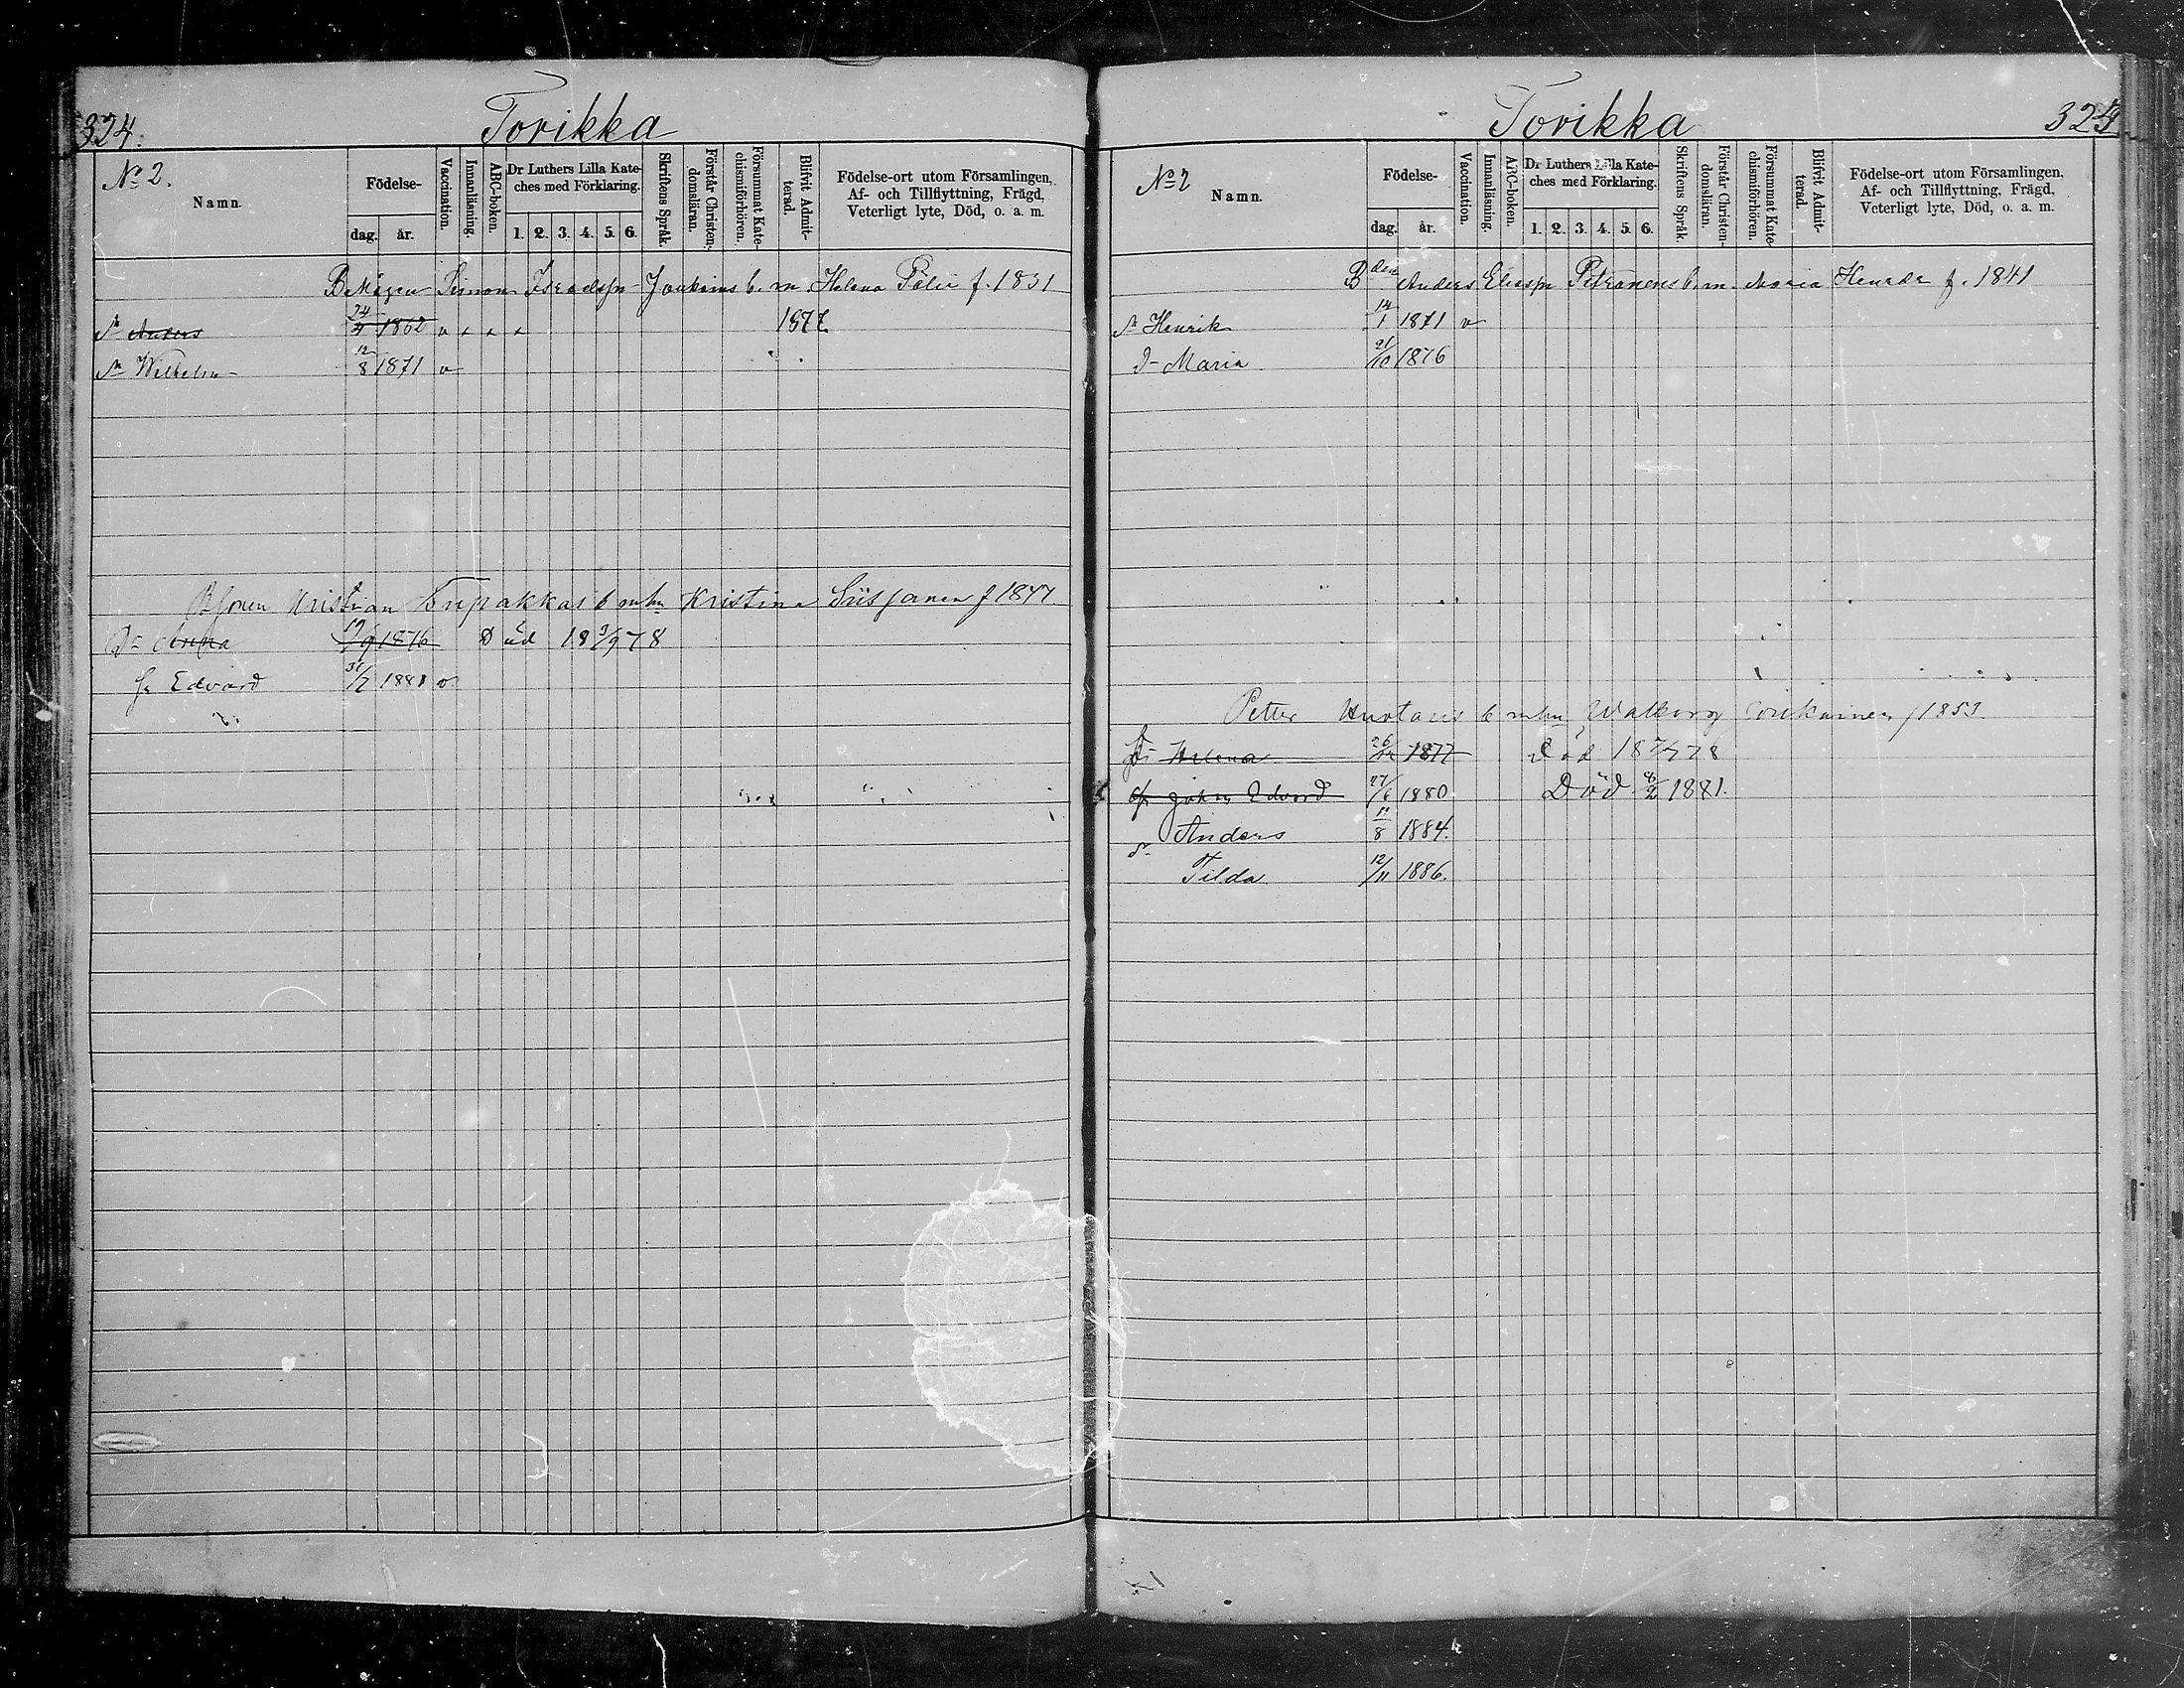 324.
Torikka
No 2.
Namn.
Födelse-
dag.
år.
Vaccination.
Innanläsning.
ABC-boken.
Dr Luthers Lilla Kate-
ches med Förklaring.
1. 2. 3. 4. 5. 6.
Skriftens Språk.
Förstår Christen-
domsläran.
Försummat Kate-
chismiförhören.
Blifvit Admit-
terad.
Födelse-ort utom Församlingen,
Af- och Tillflyttning, Frägd,
Veterligt lyte, Död, o. a. m.
B Mågen Simon Israelsn b. m. Helena f. 1831
Sn Anders 24/4 1862 1877
Sn Wilhelm 12/8 1871 v
Kristian b mhu Kristina f 1847
Dr Anna 19/9 1876 Död 18 3/9 78
Sn Edvard 31/7 1881 v
Torikka
324
No 2
Namn.
Födelse-
dag.
år.
Vaccination.
Innanläsning.
ABC-boken.
Dr Luthers Lilla Kate-
ches med Förklaring.
1. 2. 3. 4. 5. 6.
Skriftens Språk.
Förstår Christen-
domsläran.
Försummat Kate-
chismiförhören.
Blifvit Admit-
terad.
Födelse-ort utom Församlingen,
Af- och Tillflyttning, Frägd,
Veterligt lyte, Död, o. a. m.
Bden Anders Eliassn b. m. Maria Henrdr f. 1841
Sn Henrik 14/1 1871 v
D- Maria 21/10 1876
Petter b mhu Walborg f 1853.
Helena 26/12 1877 Död
Johan Edvard 17/6 1880 Död 8/2 1881.
Anders 11/8 1884.
Tilda 12/11 1886.